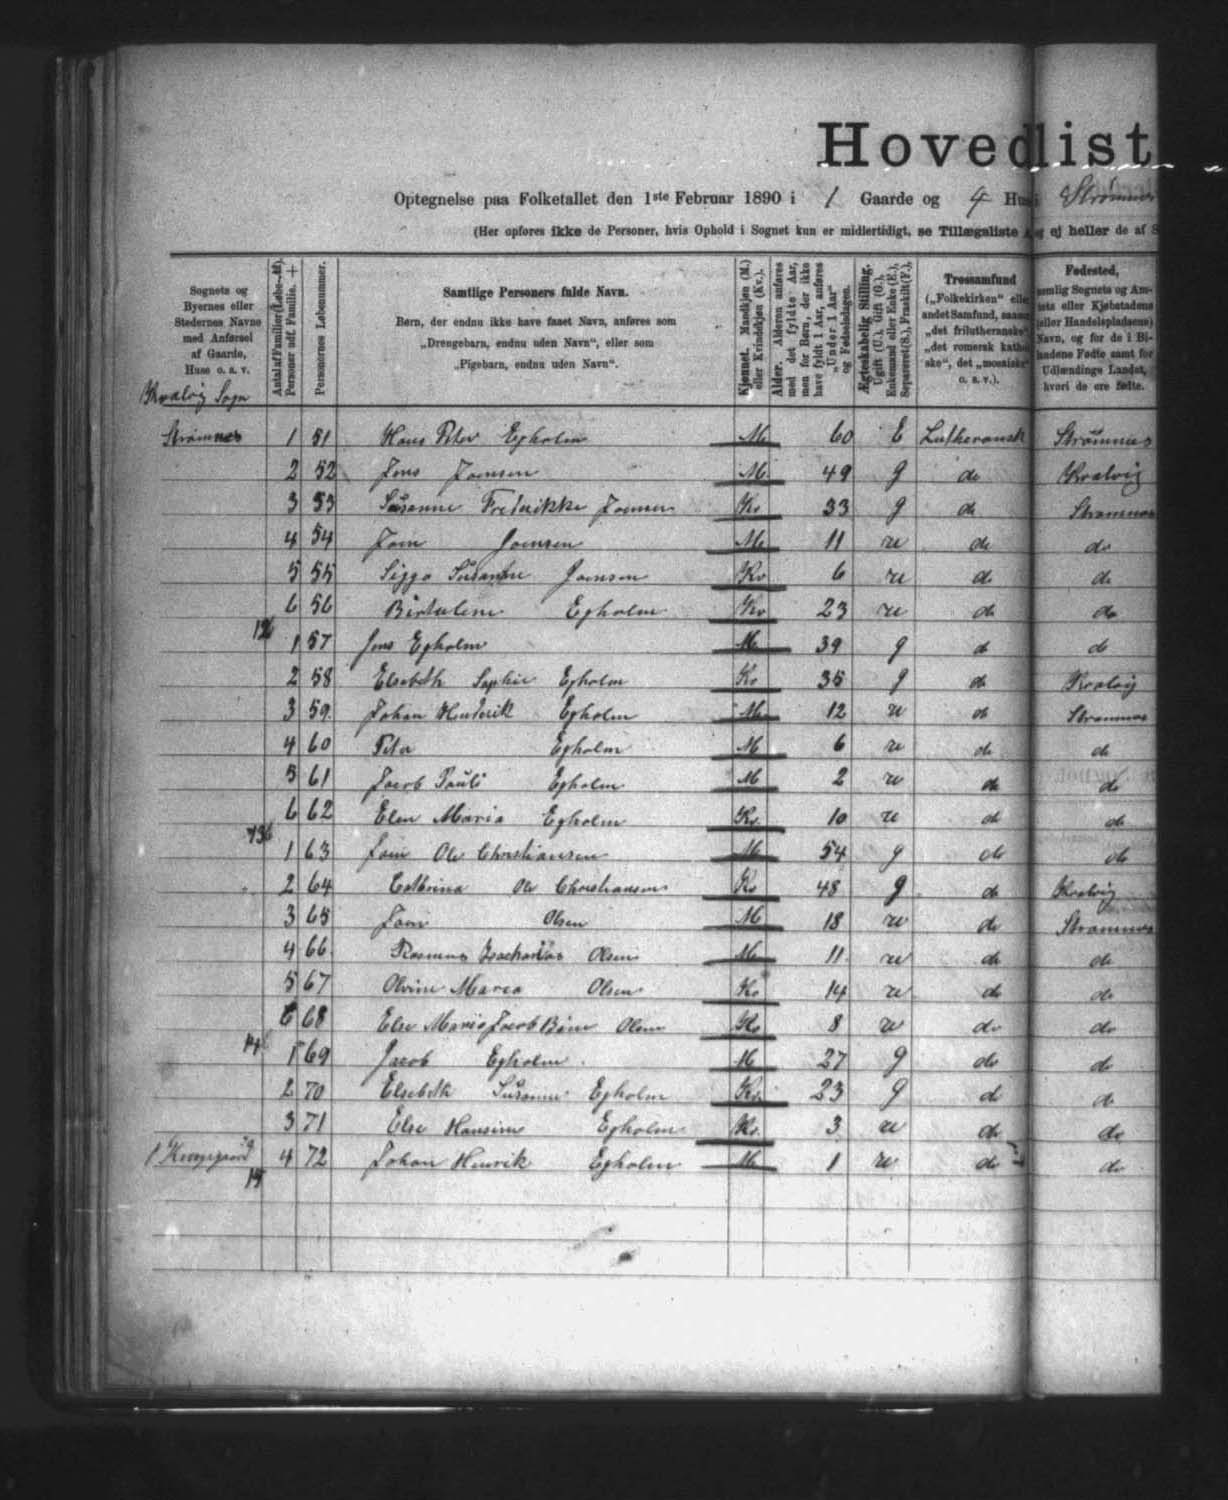 Hovedlist
Optegnelse paa Folketallet den 1ste Februar 1890 i 1 Gaarde og 4 Hus i Strömnæs
(Her opføres ikke de Personer, hvis Ophold i Sognet kun er midlertidigt, se Tillægsliste og ej heller de af S
Sognets og Byernes eller Stedernes Navne med Anførsel af Gaarde, Huse o. s. v.
Antal af Familier (Løbe-№) Personer udf. Familie. +
Personernes Løbenummer.
Samtlige Personers fulde Navn.
Børn, der endnu ikke have faaet Navn, anføres som
„Drengebarn, endnu uden Navn“, eller som
„Pigebarn, endnu uden Navn“.
Kjønnet. Mandkjøn (M.) eller Kvindekjøn (Kv.).
Alder. Alderen anføres med det fyldte Aar, men for Børn, der ikke have fyldt 1 Aar, anføres „Under 1 Aar“ og Fødselsdagen.
Ægteskabelig Stilling. Ugift (U.), Gift (G.), Enkemand eller Enke (E.), Separeret (S.), Fraskilt (F.).
Trossamfund („Folkekirken“ eller andet Samfund, saasom „det frilutheranske“, „det romersk katholske“, det „mosaiske“ o. s. v.).
Fødested, nemlig Sognets og Amtets eller Kjøbstadens (eller Handelspladsens) Navn, og for de i Bilandene Fødte samt for Udlændinge Landet, hvori de ere fødte.
Kvalvig Sogn
Strömnæs 1 51 Hans Peter Egholm M 60 E Luthersansk Strömnæs
2 52 Jens Joensen M 49 g do Kvalvig
3 53 Susanne Frederikke Joensen Kv 33 g do Strömnæs
4 54 Joen Joensen M 11 u do do
5 55 Sigga Susanne Joensen Kv 6 u do do
6 56 Egholm Kv 23 u do do
12
1 57 Jens Egholm M 39 g do do
2 58 Elsebeth Sophie Egholm Kv 35 g do Kvalvig
3 59 Johan Henderik Egholm M 12 u do Strömnæs
4 60 Peter Egholm M 6 u do do
5 61 Jacob Pauli Egholm M 2 u do do
6 62 Elen Maria Egholm Kv 10 u do do
13
1 63 Joen Ole Christiansen M 54 g do do
2 64 Cathrina Ole Christiansen Kv 48 g do Kvalvig
3 65 Joen Olsen M 18 u do Strömnæs
4 66 Rasmus Olsen M 11 u do do
5 67 Maria Olsen Kv 14 u do do
6 68 Else Maria Jacobine Olsen Kv 8 u do do
14
1 69 Jacob Egholm M 27 g do do
2 70 Elsebeth Susanne Egholm Kv 23 g do do
3 71 Else Hansine Egholm Kv 3 u do do
1 4 72 Johan Henrik Egholm M 1 u do do
15